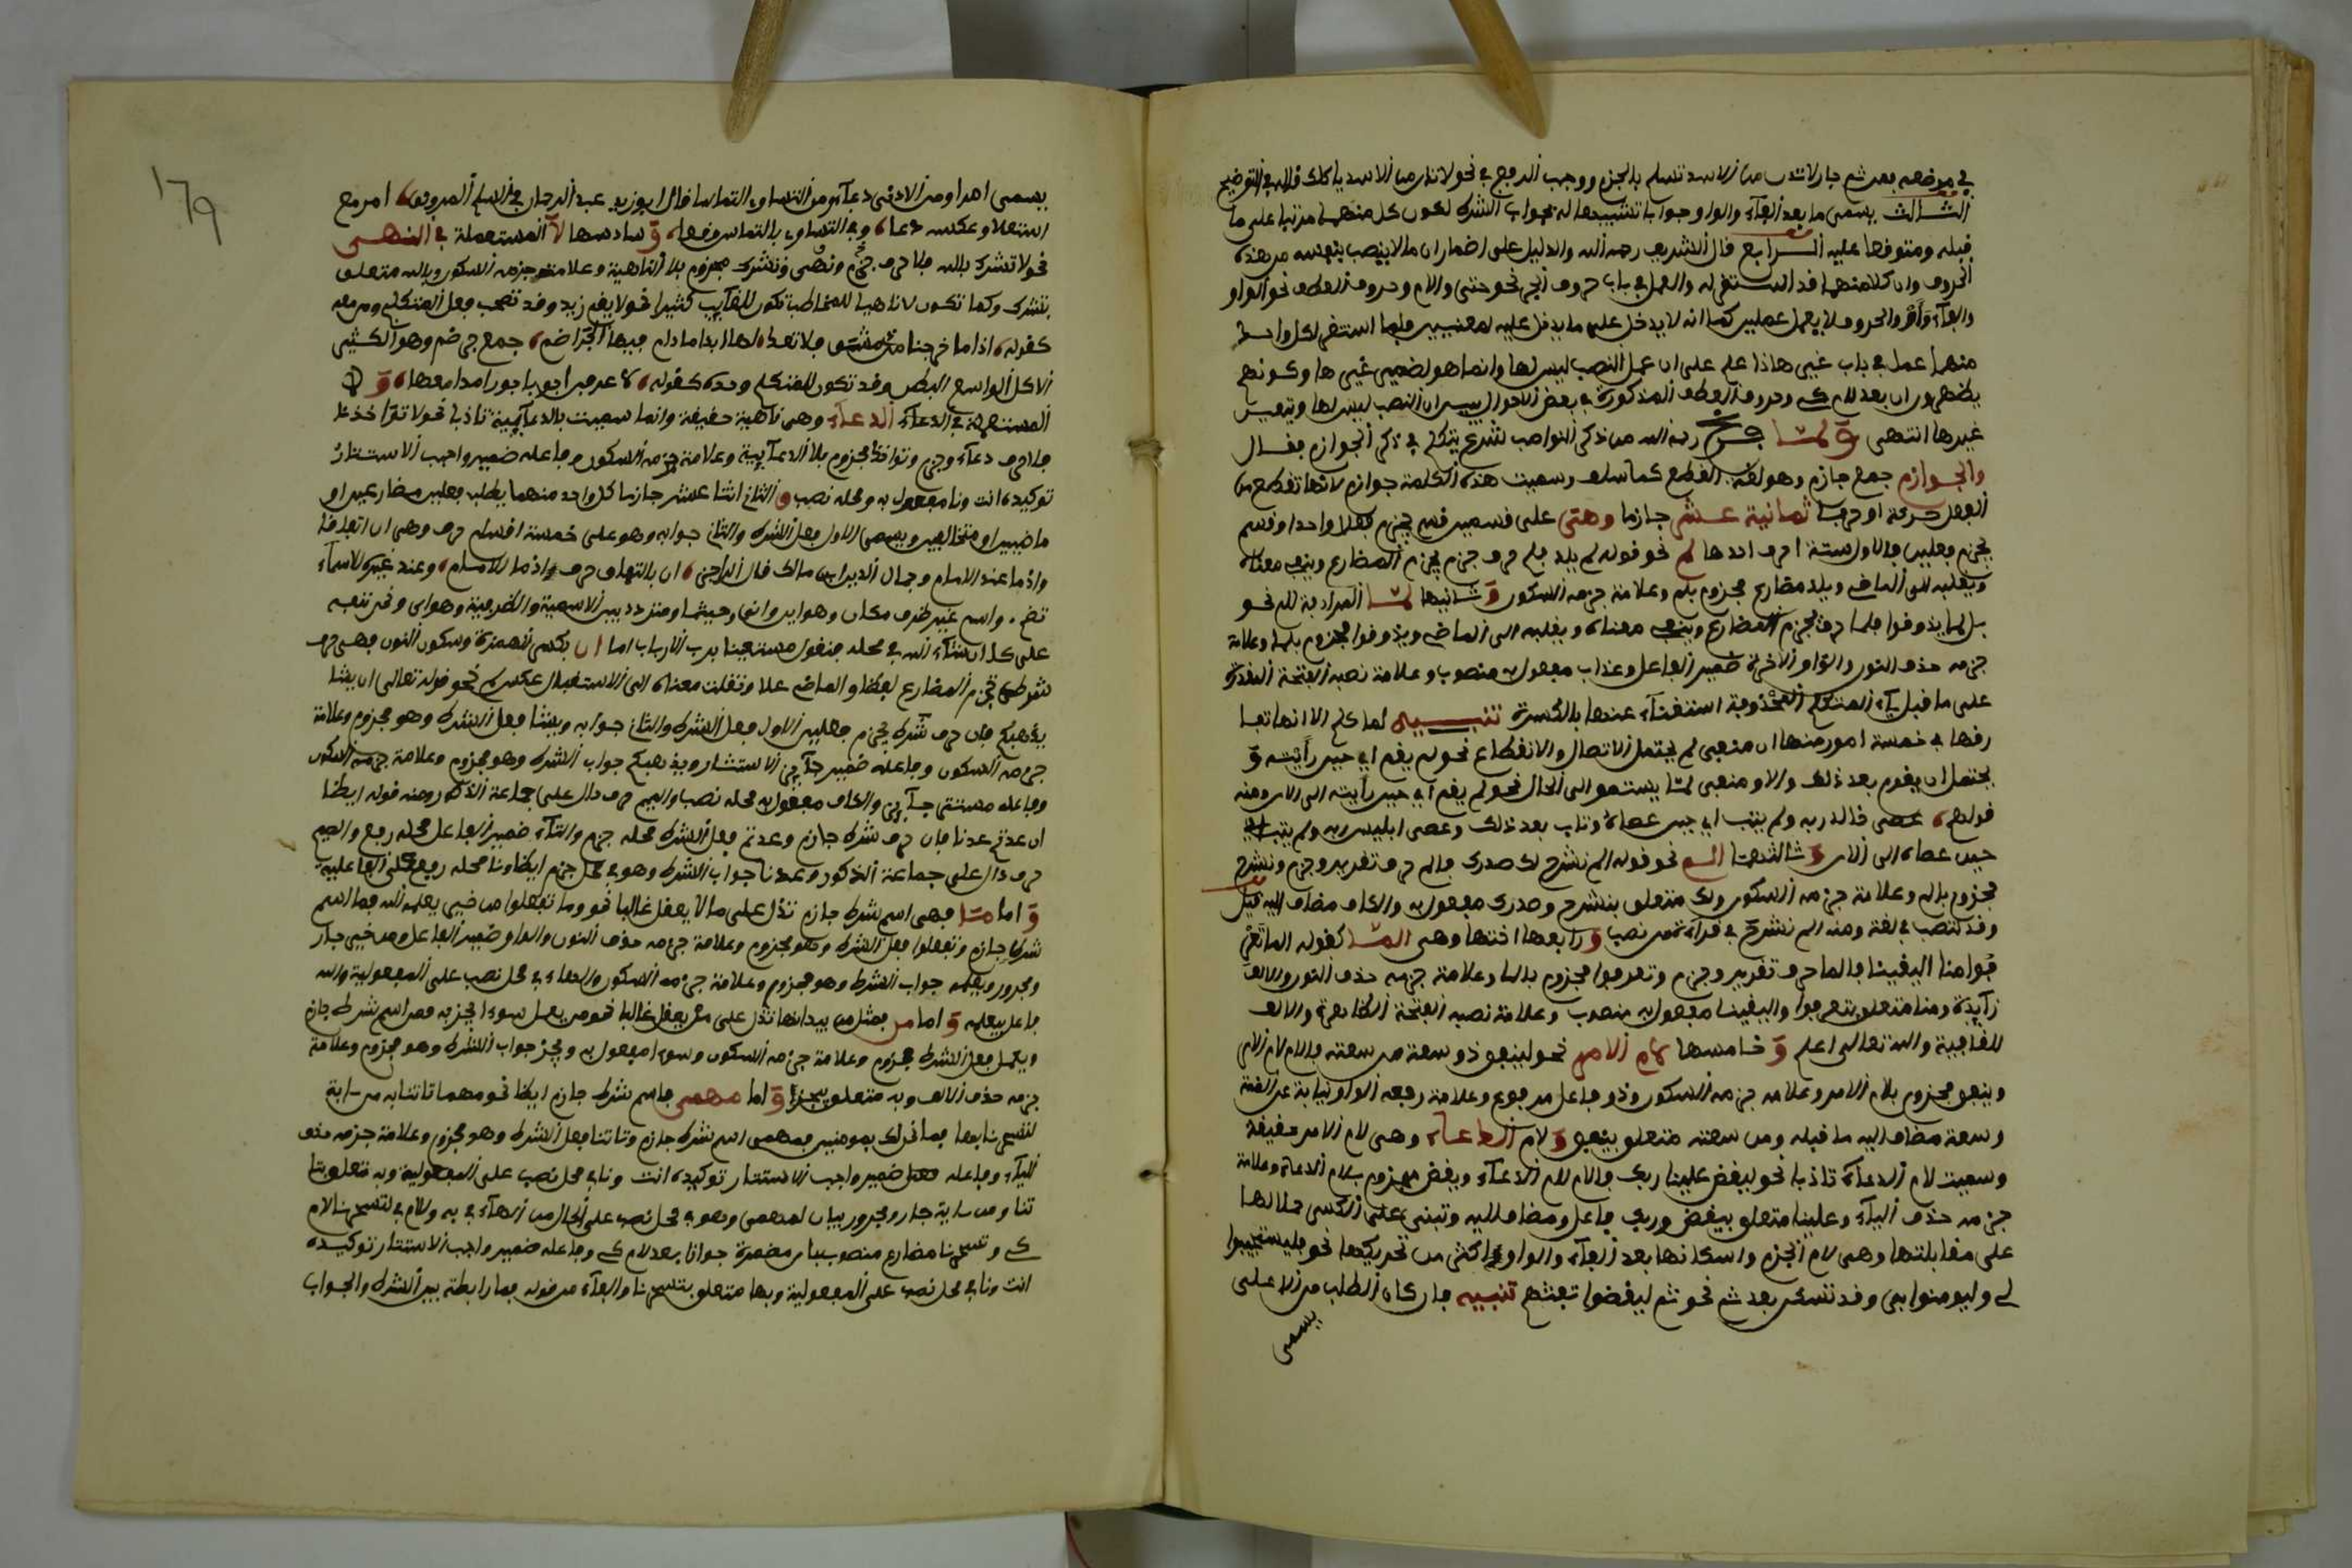 في موضعه بعد ثم جار لا تدن من الاسد تسلم بالجزم ووجب الرفع في نحو لا تدن من الاسد ياكلك قاله في التوضيح
الثالث يسمى ما بعد الفاء والواو جوابا تشبيها له بجواب الشرط لكون كل منهما مرتبا على ما
قبله ومتوقفا عليه الرابع قال الشريف رحمه الله والدليل على اضمار ان ما لا ينصب بنفسه من هذه
الحروف وان كلا منهما قد استقر له العمل في باب حروف الجر نحو حتى واللام وحروف العطف نحو الواو
والفاء وأو والحروف لا يعمل عملين كما انه لا يدخل عليه ما يدخل عليه لمعنيين فلما استقر لكل واحد
منهما عمل في باب غير هاذا علم على ان عمل النصب ليس لها وانما هو لضمير غيرها وكونهم
يظهرون ان بعد لام كي وحروف العطف المذكورة في بعض الاحوال يبين ان النصب ليس لها ويتعين
غيرها انتهى ولما فرغ رحمه الله من ذكر النواصب شرع يتكلم في ذكر الجوازم فقال
والجوازم جمع جازم وهو لغة القطع كما سلف وسميت هذه الكلمة جوازم لانها تقطع من
الفعل حركة او حرفا ثمانية عشر جازما وهي على قسمين قسم يجزم فعلا واحدا وقسم
يجزم فعلين فالاول ستة احرف احدها لم نحو قوله لم يلد فلم حرف جزم يجزم المضارع وينفي معناه
ويقلبه الى الماضي ويلد مضارع مجزوم بلم وعلامة جزمه السكون وثانيها لما المرادفة للم نحو
بل لما يذوقوا فلما حرف يجزم المضارع وينفي معناه ويقلبه الى الماضي ويذوقوا مجزوم بلما وعلامة
جزمه حذف النون والواو الاخرة ضمير الفاعل وعذاب مفعول به منصوب وعلامة نصبه الفتحة المقدرة
على ما قبل ياء المتكلم المحذوفة استغناء عنها بالكسرة تنبيه لما كلم الا انها تفا
رقها في خمسة امور منها ان منفي لم يحتمل الاتصال والانقطاع نحو لم يقم اي حين رأيته و
يحتمل ان يقوم بعد ذلك والاو منفي لما يستمر الى الحال نحو لم يقم اي حين رأيته الى الان ومنه
قولهم عصى خالد ربه ولم يتب اي حين عصاه وتاب بعد ذلك وعصى ابليس ربه ولم يتب اي
حين عصاه الى الان وثالثها الم نحو قوله الم نشرح لك صدرك فالم حرف تقرير وجزم ونشرح
مجزوم بالم وعلامة جزمه السكون ولك متعلق بنشرح وصدرك مفعول به والكاف مضاف اليه قيل
وقد تنصب في لغة ومنه الم نشرح في قراءة من نصب ورابعها اختها وهي الما كقوله الما تعر
فوا منا اليقينا فالما حرف تقرير وجزم وتعرفوا مجزوم بالما وعلامة جزمه حذف النون والالف
زايدة ومنا متعلق بتعرفوا واليقينا مفعول به منصوب وعلامة نصبه الفتحة الظاهرة والالف
للقافية والله تعالى اعلم وخامسها لام الامر نحو لينفق ذو سعة من سعته فاللام لام الامر
وينفق مجزوم بلام الامر وعلامة جزمه السكون وذو فاعل مرفوع وعلامة رفعه الواو نيابة عن الضمة
وسعة مضاف اليه ما قبله ومن سعته متعلق بينفق ولام الدعاء وهي لام الامر حقيقة
وسميت لام الدعاء تادبا نحو ليقض علينا ربك فاللام لام الدعاء ويقض مجزوم بلام الدعاء وعلامة
جزمه حذف الياء وعلينا متعلق بيقض وربك فاعل ومضاف اليه وتبنى على الكسر حملا لها
على مقابلتها وهي لام الجزم واسكانها بعد الفاء والواو اكثر من تحريكها نحو فليستجيبوا
لي وليومنوا بي وقد تسكن بعد ثم نحو ثم ليقضوا تفثهم تنبيه فان كان الطلب من الاعلى
يسمى
١٧٩
يسمى امرا ومن الادنى دعاء ومن التساوي التماسا قال ابو زيد عبد الرحمان في السلم المرونق امر مع
استعلا وعكسه دعا وفي التساوي بالتماس وقعا وسادسها لا المستعملة في النهي
نحو لا تشرك بالله فلا حرف جزم ونهي وتشرك مجزوم بلا الناهية وعلامة جزمه السكون وبالله متعلق
بتشرك وكما تكون لا ناهيا للمخاطب تكون للغايب كثيرا نحو لا يقم زيد وقد تصحب فعل المتكلم ومن معه
كقوله اذا ما خرجنا من دمشق فلا نعد لها ابدا ما دام فيها الجراضم جمع جرضم وهو الكثير
الاكل الواسع البطن وقد تكون للمتكلم وحده كقوله لا اعرفن ربربا حورا مدامعها و لا
المستعملة في الدعاء الدعاء وهي ناهية حقيقة وانما سميت بالدعائية تادبا نحو لا تؤاخذنا
فلا حرف دعاء وجزم وتؤاخذ مجزوم بلا الدعائية وعلامة جزمه السكون وفاعله ضمير واجب الاستتار
توكيده انت ونا مفعول به ومحله نصب والثاني اثنا عشر جازما كل واحد منهما يطلب فعلين مضارعين او
ماضيين او متخالفين ويسمى الاول فعل الشرط والثاني جوابه وهو على خمسة اقسام حرف وهي ان اتفاقا
واذما عند الامام وجمال الدين ابن مالك قال الراجز ان بالتهاوي حرف واذما الاسام وعند غيره الاسماء
تضم واسم غير ظرف مكان وهو اين وانى وحيثما ومتردد بين الاسمية والظرفية وهو اي وخر تنبيه
على كل ان شاء الله في محله فنقول مستعينا برب الارباب اما ان بكسر الهمزة وسكون النون فهي حرف
شرط يجزم المضارع لفظا والماضي محلا وتقلب معناه الى الاستقبال عكس لم نحو قوله تعالى ان يشا
يذهبكم فان حرف شرط يجزم فعلين الاول فعل الشرط والثاني جوابه ويشا فعل الشرط وهو مجزوم وعلامة
جزمه السكون وفاعله ضمير جايز الاستتار ويذهبكم جواب الشرط وهو مجزوم وعلامة جزمه السكون
وفاعله مستتر جايز والكاف مفعول به محله نصب والميم حرف دال على جماعة الذكور ومنه قوله ايضا
ان عدتم عدنا فان حرف شرط جازم وعدتم فعل الشرط محله جزم والتاء ضمير الفاعل محله رفع والميم
حرف دال على جماعة الذكور وعدنا جواب الشرط وهو في محل جزم ايضا ونا محله رفع على الفاعلية
واما ما فهي اسم شرط جازم تدل على ما لا يعقل غالبا نحو وما تفعلوا من خير يعلمه الله فما اسم
شرط جازم وتفعلوا فعل الشرط وهو مجزوم وعلامة جزمه حذف النون والواو ضمير الفاعل ومن خير جار
ومجرور ويعلمه جواب الشرط وهو مجزوم وعلامة جزمه السكون والهاء في محل نصب على المفعولية والله
فاعل بيعلمه واما من فمثل ما بيد انها تدل على من يعقل غالبا نحو من يعمل سوءا يجز به فمن اسم شرط جازم
ويعمل فعل الشرط مجزوم وعلامة جزمه السكون وسوءا مفعول به ويجز جواب الشرط وهو مجزوم وعلامة
جزمه حذف الالف وبه متعلق بيجز واما مهمى فاسم شرط جازم ايضا نحو مهما تاتنا به من ءاية
لتسحرنا بها فما نحن لك بمومنين فمهمى اسم شرط جازم وتاتنا فعل الشرط وهو مجزوم وعلامة جزمه حذف
الياء وفاعله ضمير واجب الاستتار توكيده انت ونا في محل نصب على المفعولية وبه متعلق بتا
تنا ومن ءاية جار ومجرور بيان لمهمى وهو في محل نصب على الحال من الهاء في به واللام في لتسحرنا لام
كي وتسحرنا مضارع منصوب بان مضمرة جوازا بعد لام كي وفاعله ضمير واجب الاستتار توكيده
انت ونا في محل نصب على المفعولية وبها متعلق بتسحرنا والفاء من قوله فما رابطة بين الشرط والجواب